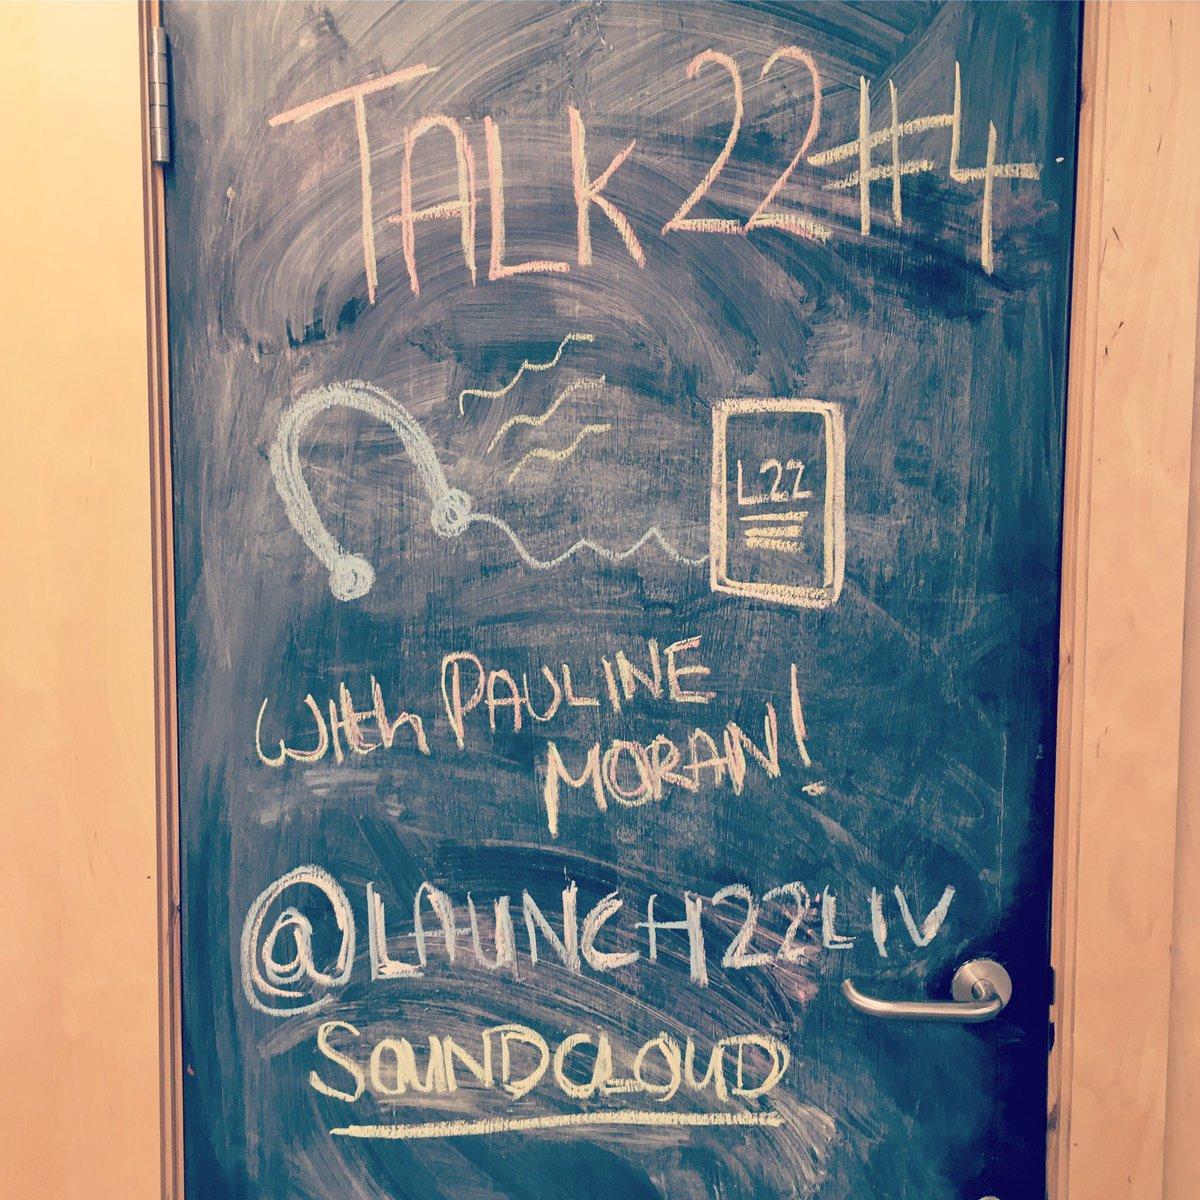 TALK 22 #4
L22
With PAULINE
MORAN!
@LAUNCH22LIV
SOUNDCLOUD